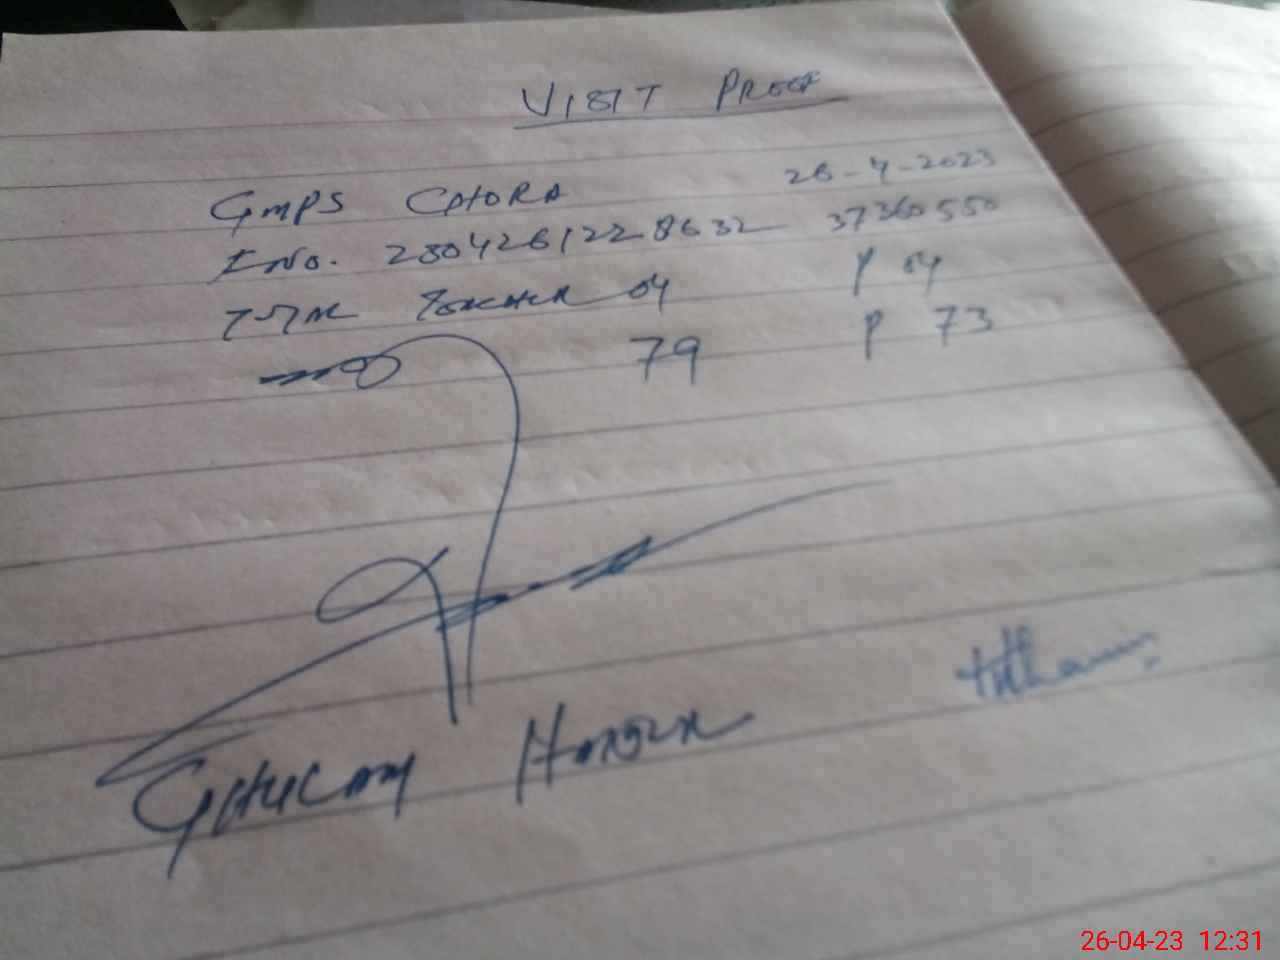 VISIT PROOF
GMPS CHORA 26-4-2023
I No. 280426122 8632 37360550
Total Teacher 04 P 04
79 P 73
GHULAM
26-04-23 12:31